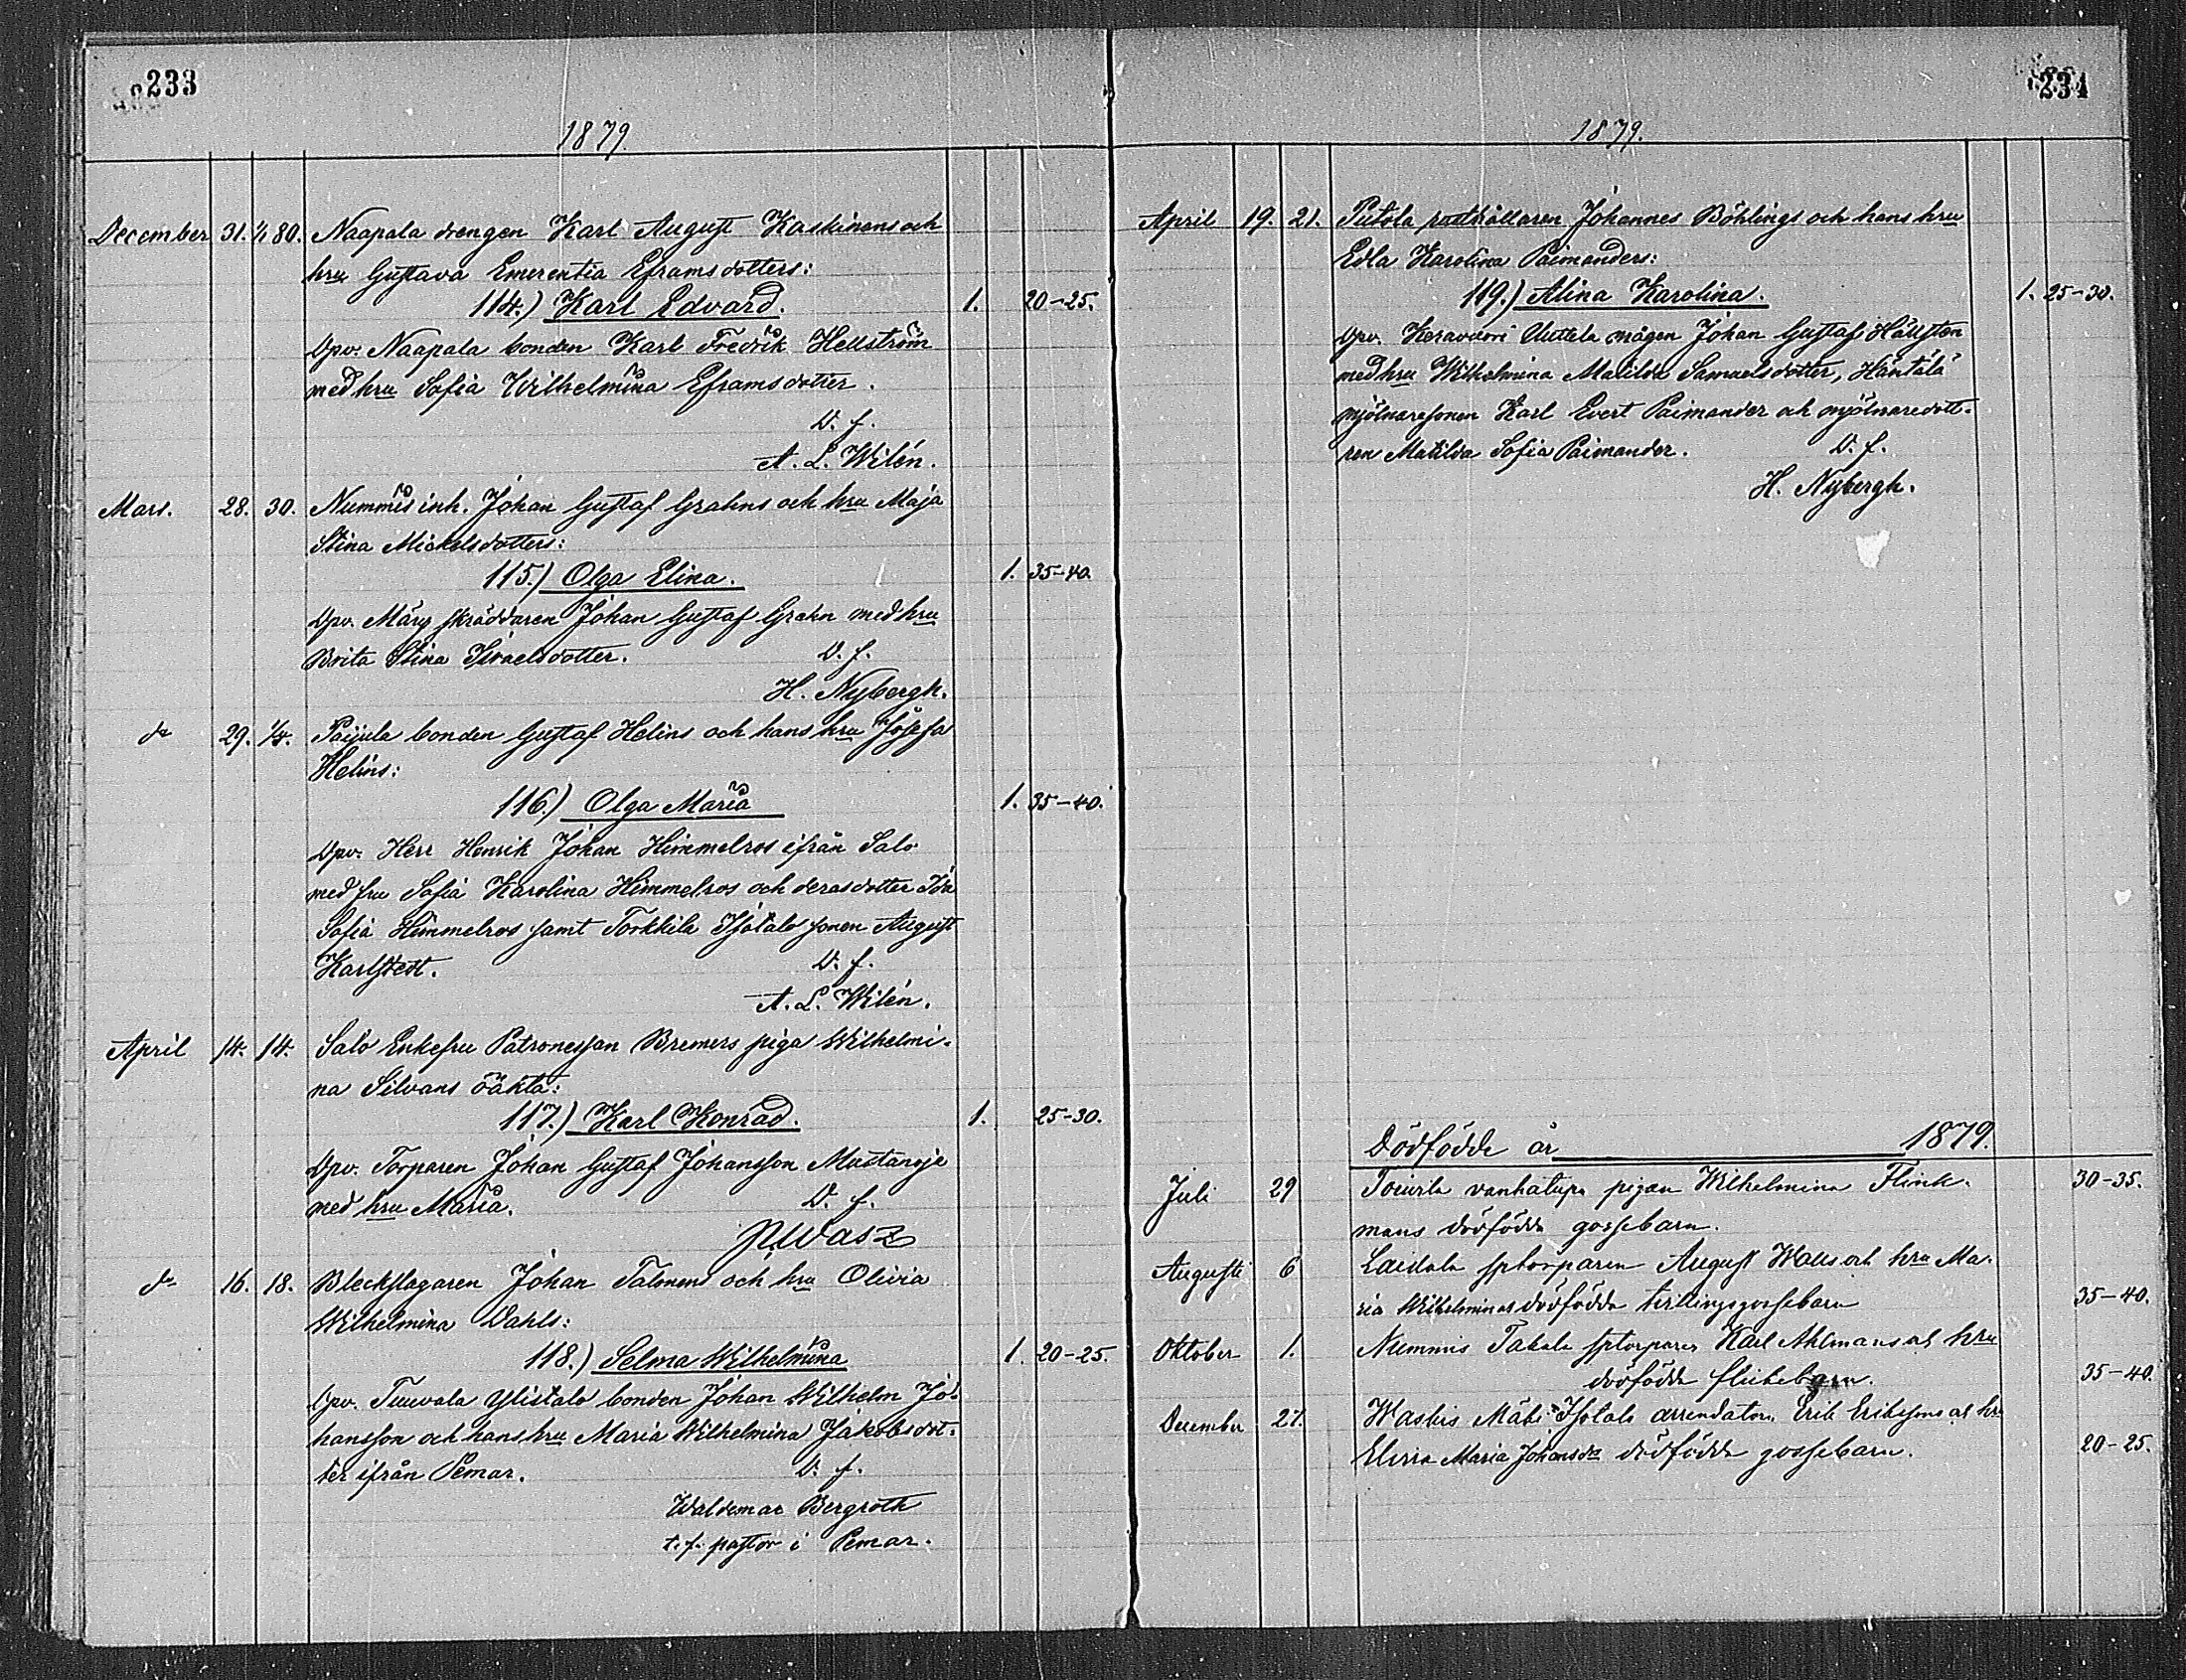 233
1879.
December 31. 1/1 80. Naapala drengen Karl August Kaskinens och
hru Gustava Emerentia Eframsdotters:
114.) Karl Edvard. 1. 20-25.
Dpv. Naapala bonden Karl Fredrik Hellström
med hru Sofia Wilhelmina Eframsdotter.
D. f.
A. L. Wilén.
Mars. 28. 30. Nummis inh. Johan Gustaf Grahns och hru Maja
Stina Mickelsdotters:
115.) Olga Elina. 1. 35-40.
Dpv. Märy skräddaren Johan Gustaf Grahn med hru
Brita Stina Israelsdotter. D. f.
H. Nybergh.
do 29. 1/4. Paijula bonden Gustaf Helins och hans hru Josefa
Helins:
116.) Olga Maria 1. 35-40.
Dpv. Herr Henrik Johan Himmelros ifrån Salo
med fru Sofia Karolina Himmelros och deras dotter Ida
Sofia Himmelros samt Torkkila Isotalo sonen August
Karlstedt. D. f.
A. L. Wilén.
April 14. 14. Salo Enkefru Patronessan Bremers piga Wilhelmi-
na Silvans oäkta:
117.) Karl Konrad. 1. 25-30.
Dpv. Torparen Johan Gustaf Johansson Mustanoja
med hru Maria. D. f.
Wasz
do 16. 18. Bleckslagaren Johan Talonens och hru Olivia
Wilhelmina Dahls:
118.) Selma Wilhelmina 1. 20-25.
Dpv. Tuuvala Ylistalo bonden Johan Wilhelm Jo-
hansson och hans hru Maria Wilhelmina Jakobsdot-
ter ifrån Pemar. D. f.
Waldemar Bergroth
t. f. pastor i Pemar.
234
1879.
April 19. 21. Putola rusthållaren Johannes Böhlings och hans hru
Edla Karolina Paimanders:
119.) Alina Karolina. 1. 25-30.
Dpv. Keravuori Uuttela mågen Johan Gustaf Hällsten
med hru Wilhelmina Matilda Samuelsdotter, Häntälä
mjölnaresonen Karl Evert Paimander och mjölnaredott-
ren Matilda Sofia Paimander. D. f.
H. Nybergh.
Dödfödde år 1879.
Juli 29 vanhatupa pigan Wilhelmina Flink- 30-35.
mans dödfödda gossebarn.
Augusti 6 Laidala sptorparen August och hru Ma-
ria Wilhelminas dödfödda tvillingsgossebarn 35-40.
Oktober 1. Nummis Takala sptorparen Karl Ahlmans och hru
dödfödda flickebarn. 35-40.
December 27. Waskis Mäki Isotalo arrendatorn Erik Erikssons och hru
Maria Johansdr dödfödda gossebarn. 20-25.